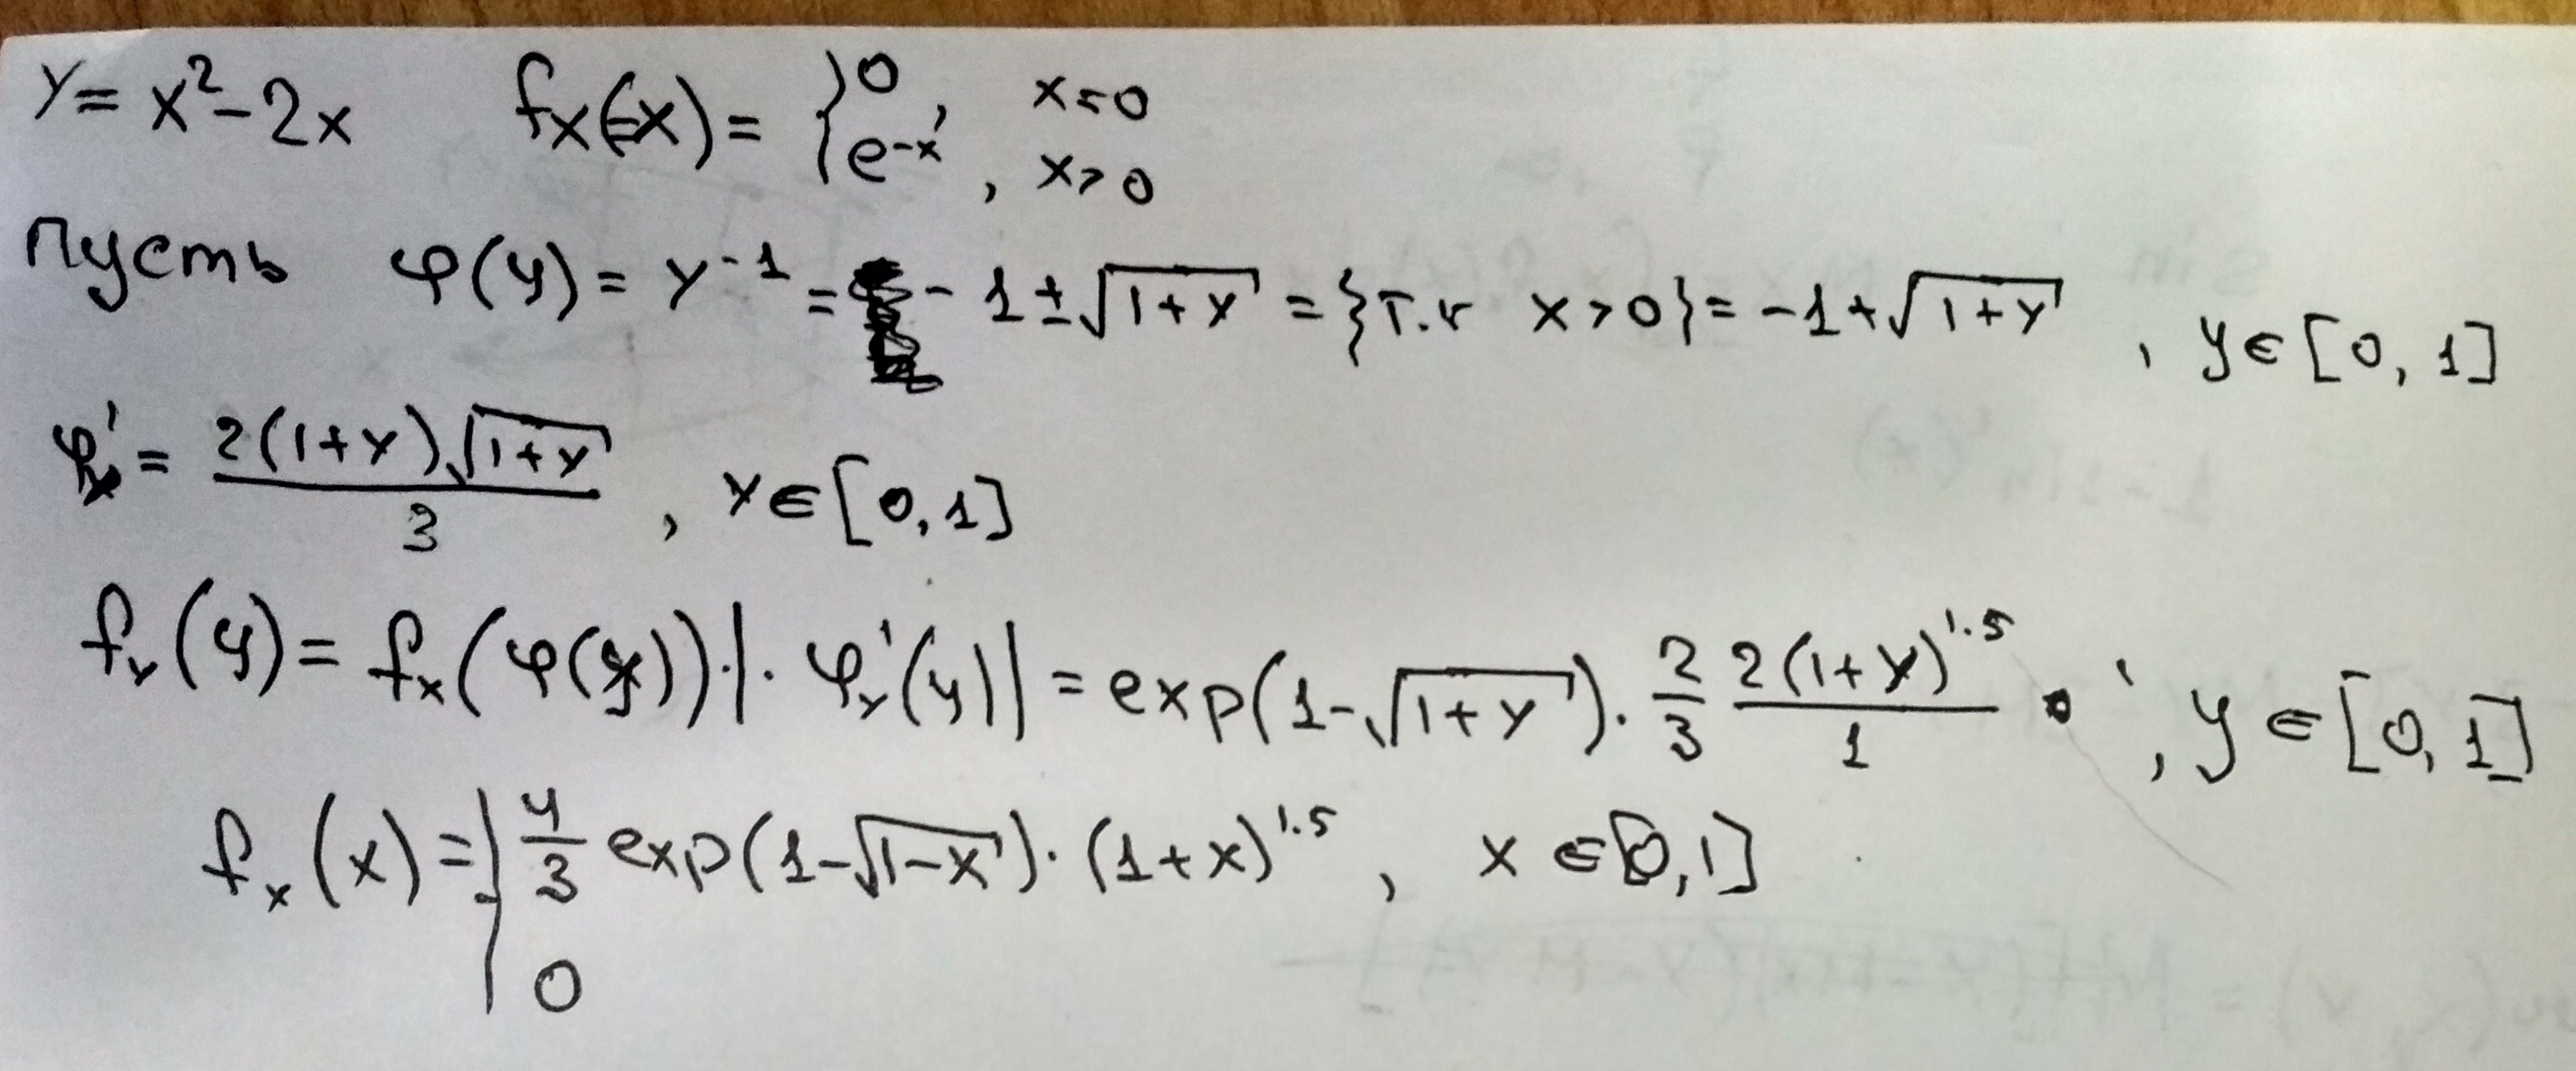 Y = x² - 2x   fx(x) = { 0, x ≤ 0
e^-x, x > 0
Пусть φ(y) = Y^-1 = -1 ± √(1+Y) = {т.к x > 0} = -1 + √(1+Y), y ∈ [0, 1]
φ' = 2(1+Y)√(1+Y) / 3, Y ∈ [0, 1]
fY(y) = fx(φ(y)) · | · φY'(y)| = exp(1 - √(1+Y)) · 2/3 2(1+Y)^1.5 / 1 ·, y ∈ [0, 1]
fx(x) = { 4/3 exp(1 - √(1-x)) · (1+x)^1.5, x ∈ [0, 1]
0